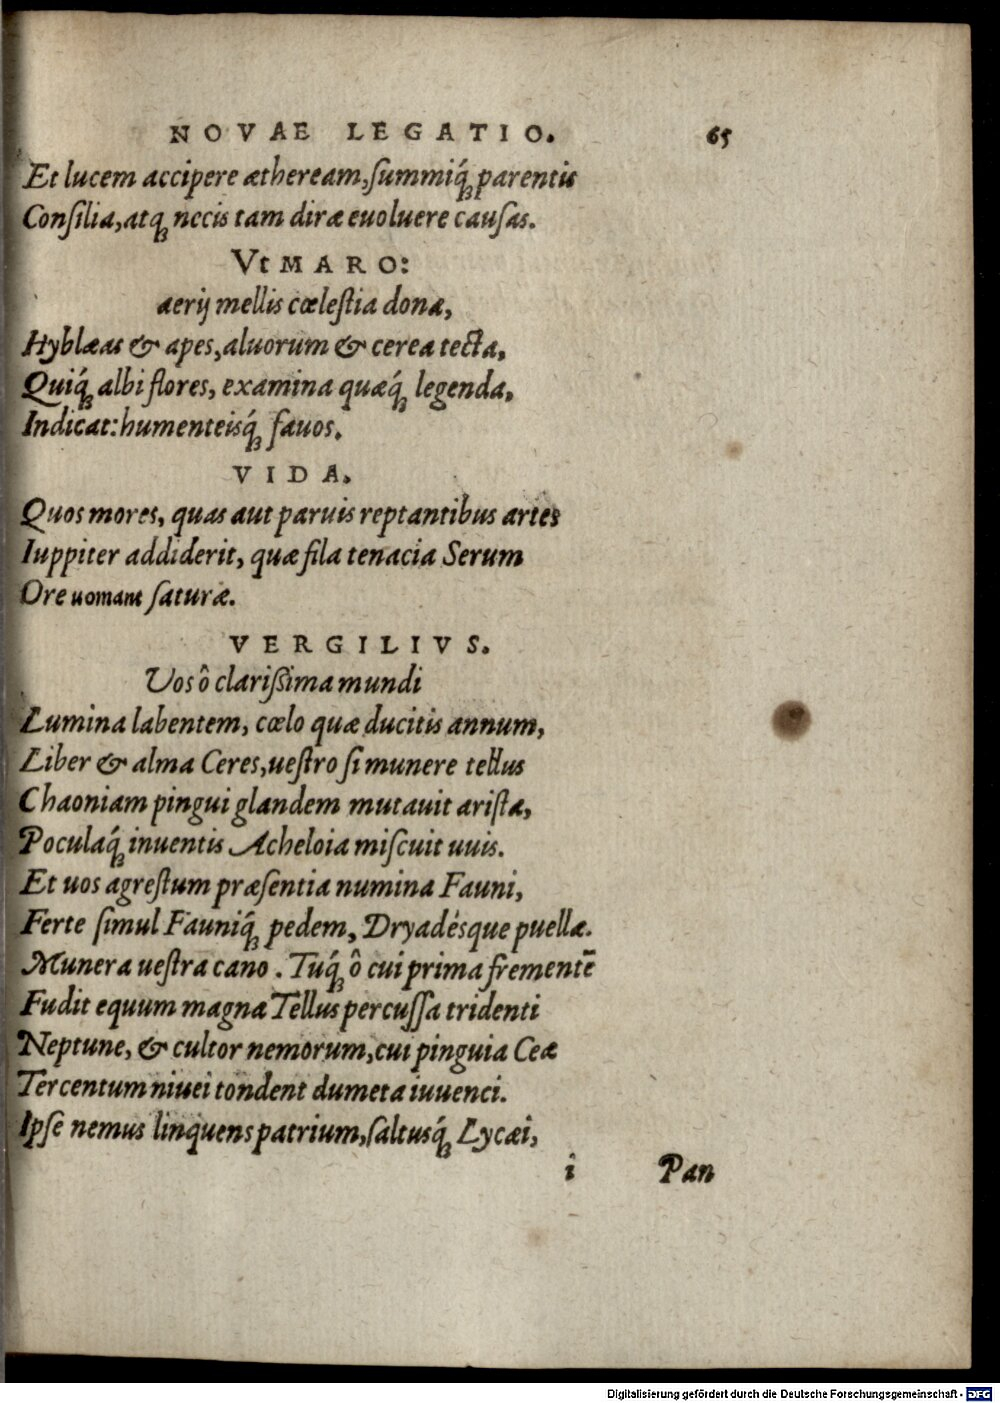 NOVAE LEGATIO. 65
Et lucem accipere ætheream, summiq́ꝫ parentis
Consilia, atqꝫ necis tam diræ euoluere causas.
Vt MARO:
aerij mellis cœlestia dona,
Hyblæas & apes, aluorum & cerea tecta,
Quiq́ꝫ albi flores, examina quæq́ꝫ legenda,
Indicat: humenteisq́ꝫ fauos.
VIDA.
Quos mores, quas aut paruis reptantibus artes
Iuppiter addiderit, quæ fila tenacia Serum
Ore uomant saturæ.
VERGILIVS.
Vos ô clarissima mundi
Lumina labentem, cœlo quæ ducitis annum,
Liber & alma Ceres, uestro si munere tellus
Chaoniam pingui glandem mutauit arista,
Poculaq́ꝫ inuentis Acheloia miscuit uuis.
Et uos agrestum præsentia numina Fauni,
Ferte simul Fauniq́ꝫ pedem, Dryadésque puellæ.
Munera uestra cano. Tuq́ꝫ ô cui prima frementē
Fudit equum magna Tellus percussa tridenti
Neptune, & cultor nemorum, cui pinguia Ceæ
Tercentum niuei tondent dumeta iuuenci.
Ipse nemus linquens patrium, saltusq́ꝫ Lycæi,
i Pan
Digitalisierung gefördert durch die Deutsche Forschungsgemeinschaft - DFG